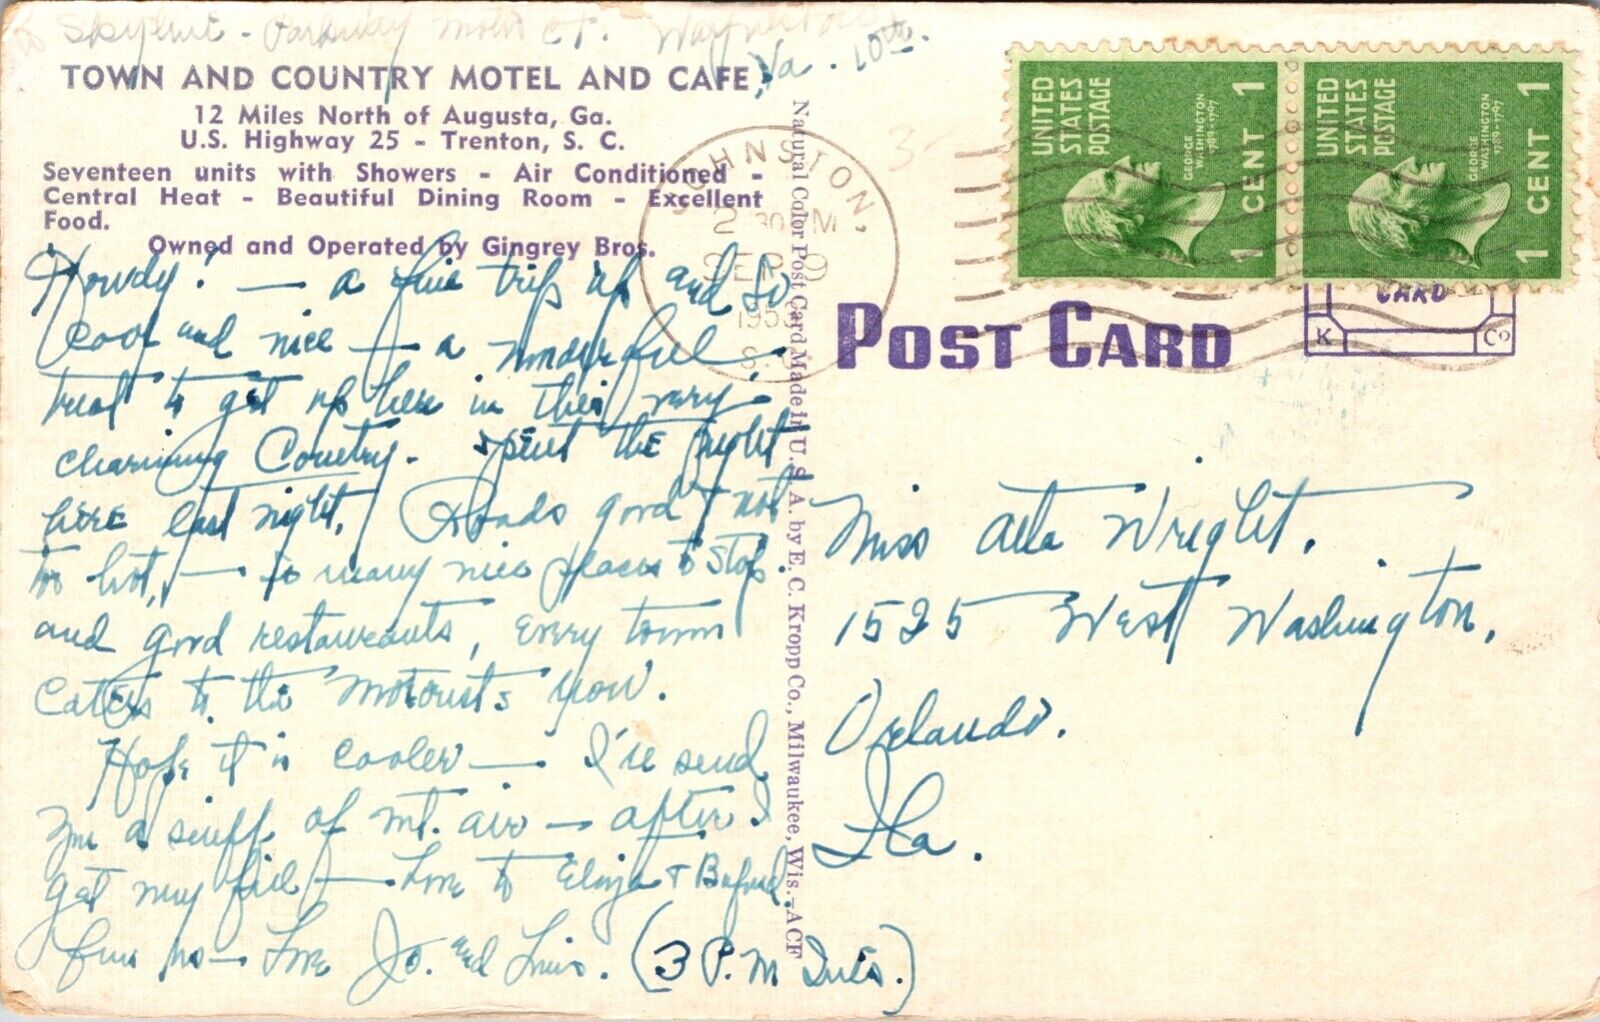 to Skyline - Parkway Motor Ct.
Va. 10th.
TOWN AND COUNTRY MOTEL AND CAFE
12 Miles North of Augusta, Ga.
U.S. Highway 25 - Trenton, S. C.
Seventeen units with Showers - Air Conditioned -
Central Heat - Beautiful Dining Room - Excellent
Food.
Owned and Operated by Gingrey Bros.
Howdy! — a fine trip up and so
cool and nice — a wonderful
treat to get up here in this very
charming Country. Spent the night
here last night. Roads good & not
too hot, — so many nice places to stop.
and good restaurants, every town
caters to the motorists now.
Hope it is cooler — I'll send
you a sniff of mt. air — after I
get my fill — Love to Eliza & Buford
from us — Love Jo. and Linis. (3 P.M. Tues.)
Natural Color Post Card Made in U. S. A. by E. C. Kropp Co., Milwaukee, Wis.—ACF
JOHNSTON,
2 30 PM
SEP 9
195
S.C.
UNITED STATES POSTAGE
GEORGE WASHINGTON 1789-1797
1 CENT 1
UNITED STATES POSTAGE
GEORGE WASHINGTON 1789-1797
1 CENT 1
CARD
K Co
POST CARD
Miss Alta Wright.
1525 West Washington,
Orlando.
Fla.